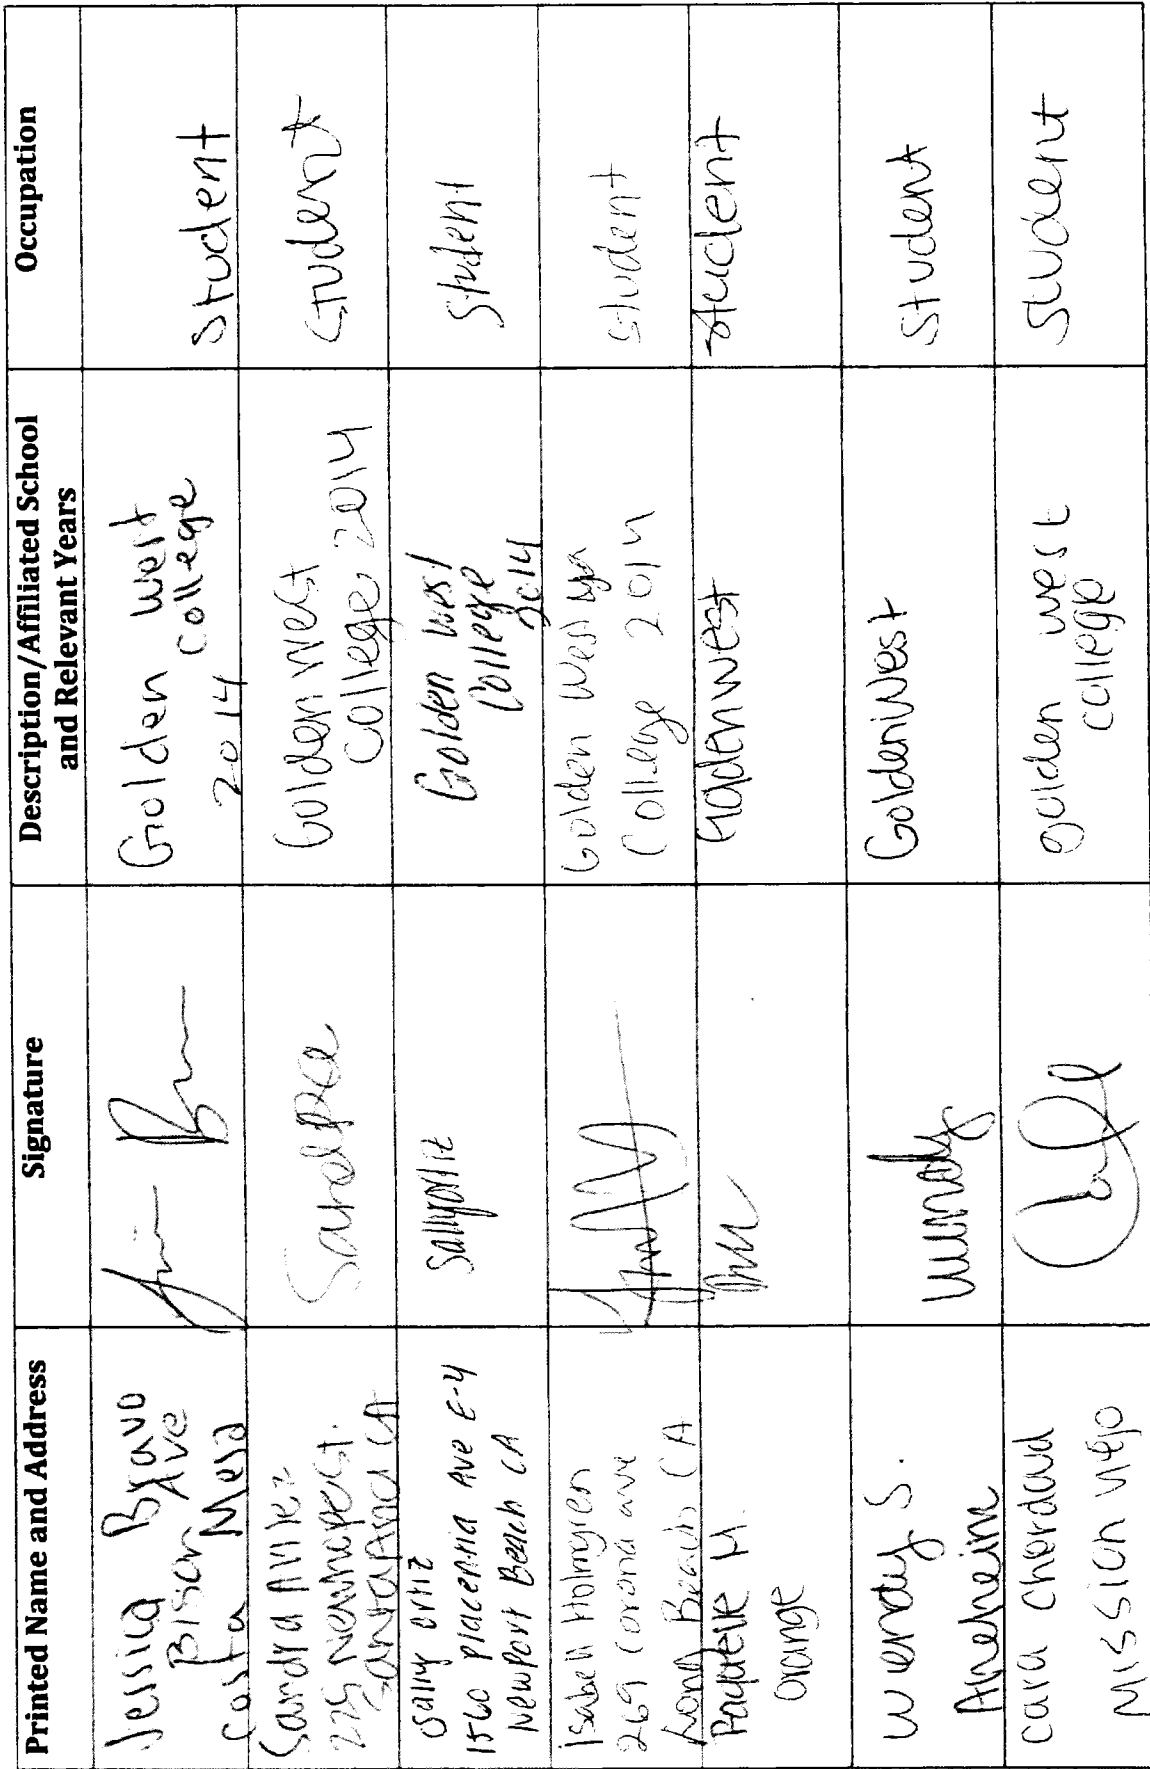 Printed Name and Address
Signature
Description/Affiliated School
and Relevant Years
Occupation
Jessica Bravo
Bison Ave
Costa Mesa
Golden West
College
2014
Student
Sandra
225 Newhope St.
Santa Ana CA
Golden West
College 2014
Student
Sally Ortiz
1560 Placentia Ave E-4
Newport Beach CA
Sally Ortiz
Golden West
College
2014
Student
Isabell Holmgren
269 Corona ave
Long Beach CA
Golden West
College 2014
Student
M.
Orange
Goldenwest
Student
Wendy S.
Aneheim
Wendy
Golden West
Student
Cara
Mission Viejo
golden west
college
Student